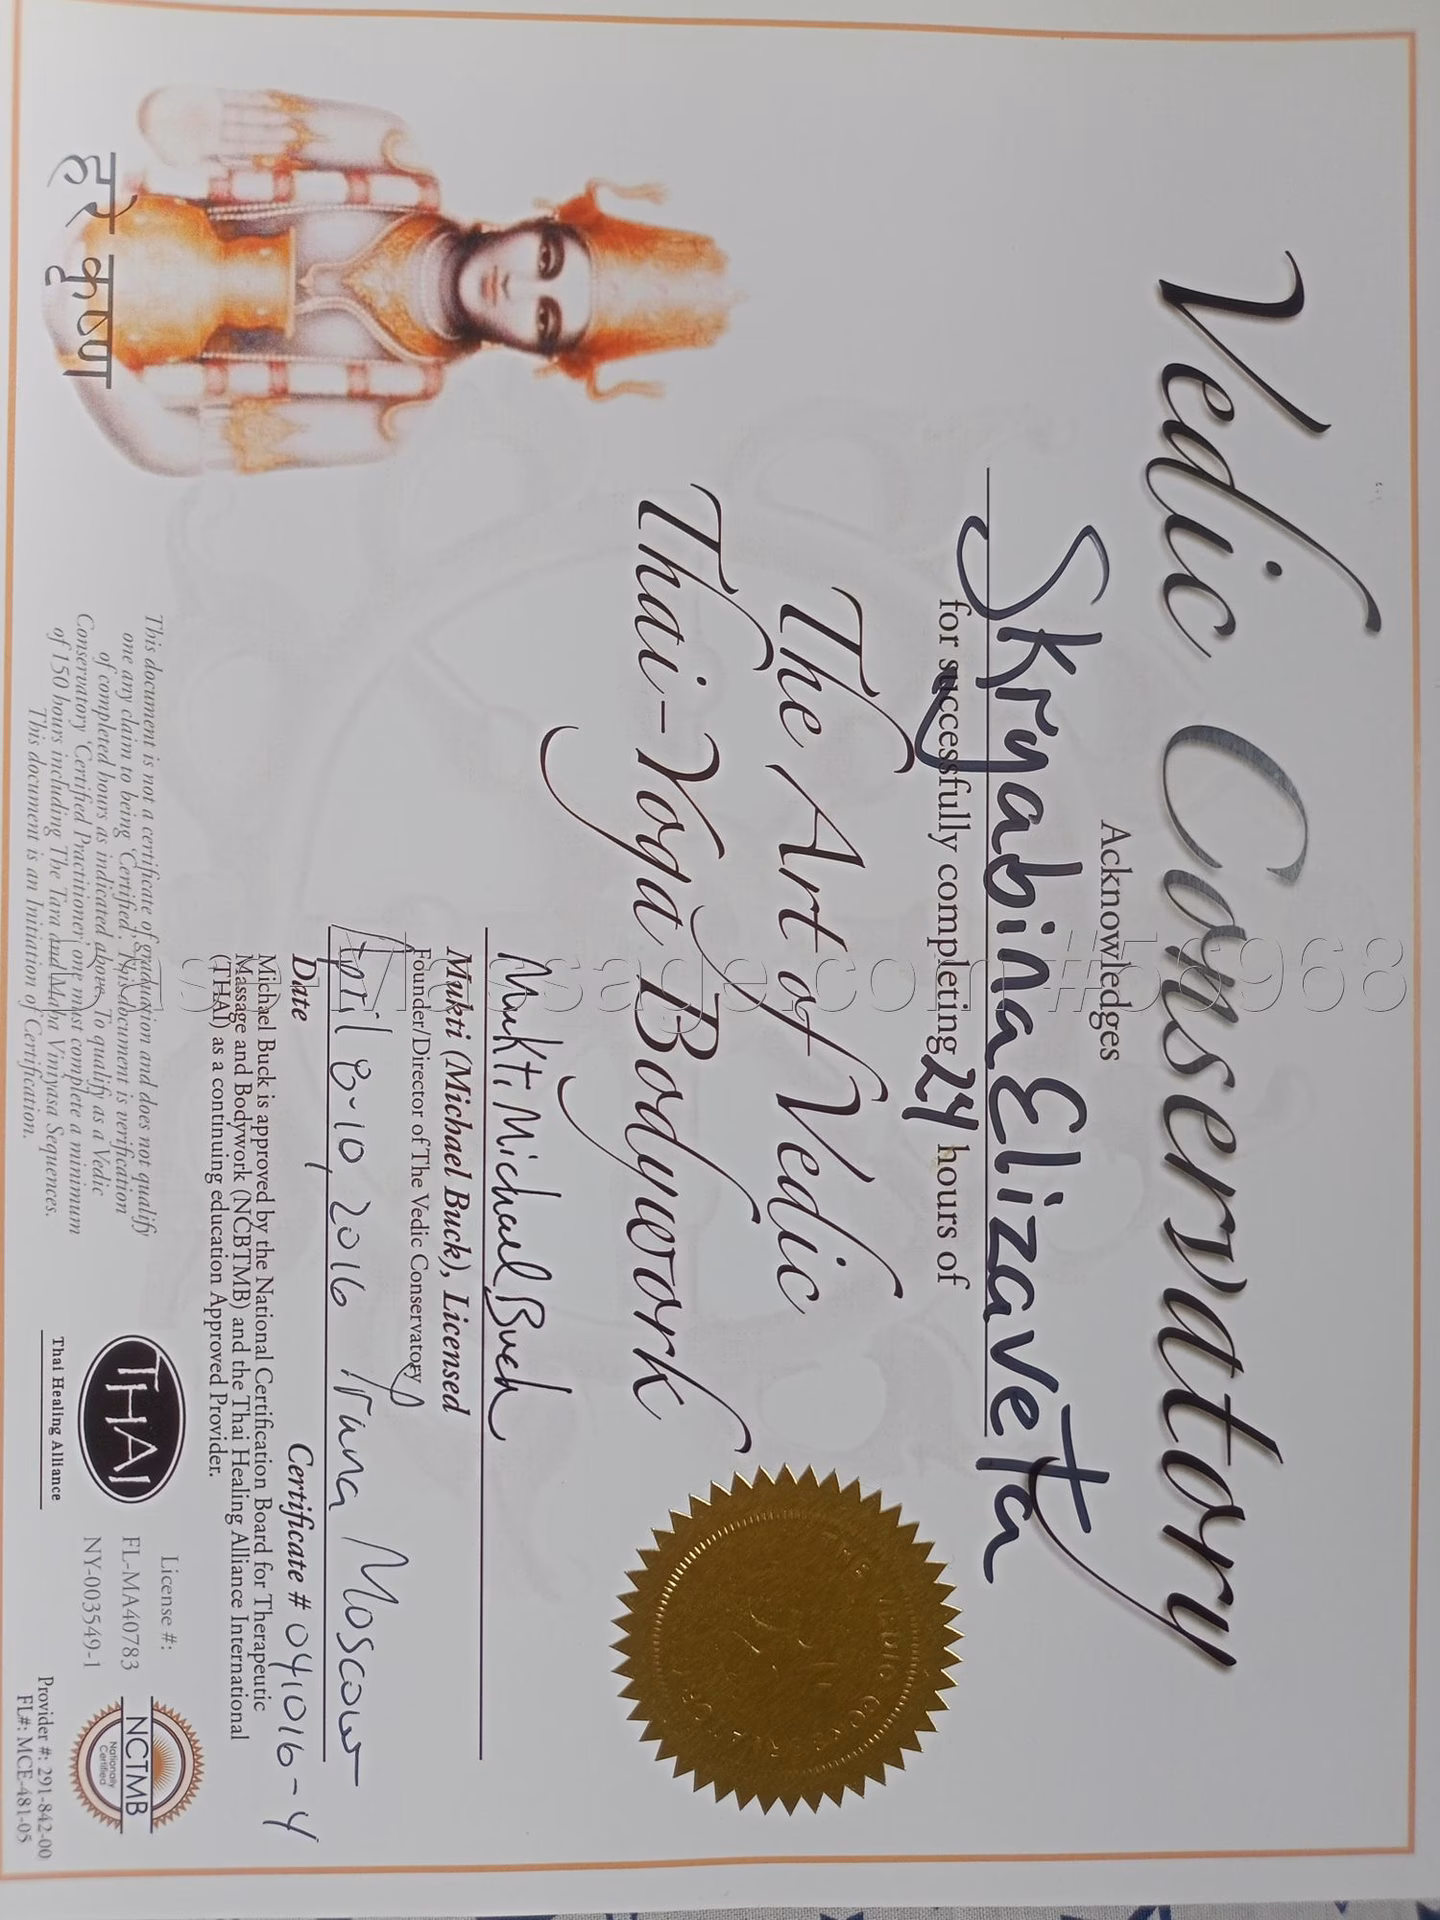 Vedic Conservatory
Acknowledges
Skryabina Elizaveta
for successfully completing 24 hours of
The Art of Vedic
Thai-Yoga Bodywork
Mukti Michael Buck
Mukti (Michael Buck), Licensed
Founder/Director of The Vedic Conservatory
April 8-10, 2016 Moscow
Date
Certificate # 041016-4
Michael Buck is approved by the National Certification Board for Therapeutic
Massage and Bodywork (NCBTMB) and the Thai Healing Alliance International
(THAI) as a continuing education Approved Provider.
हरे कृष्ण
This document is not a certificate of graduation and does not qualify
one any claim to being 'Certified'. This document is verification
of completed hours as indicated above. To qualify as a Vedic
Conservatory 'Certified Practitioner', one must complete a minimum
of 150 hours including The Tara and Maha Vinyasa Sequences.
This document is an Initiation of Certification.
THAI
Thai Healing Alliance
License #:
FL-MA40783
NY-003549-1
NCTMB
Nationally
Certified
Provider #: 291-842-00
FL#: MCE-481-05
THE VEDIC CONSERVATORY
#56968